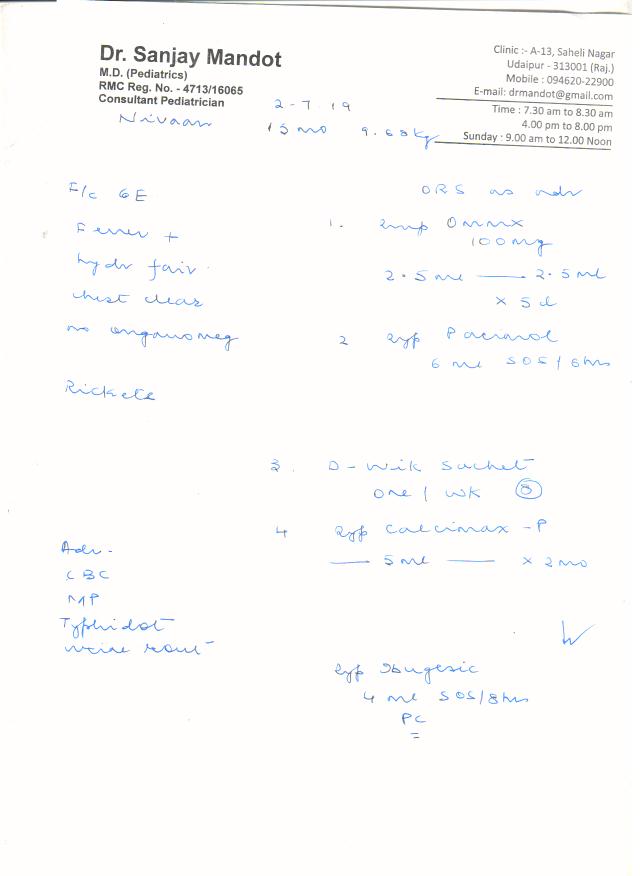 Dr. Sanjay Mandot
M.D. (Pediatrics)
RMC Reg. No. - 4713/16065
Consultant Pediatrician
Clinic :- A-13, Saheli Nagar
Udaipur - 313001 (Raj.)
Mobile : 094620-22900
E-mail: drmandot@gmail.com
Time : 7.30 am to 8.30 am
4.00 pm to 8.00 pm
Sunday : 9.00 am to 12.00 Noon
2-7.19
Nivaan 15 mo 9.68 kg
F/c GE
Fever +
hydr fair
chest clear
no organomeg
Rickets
ORS as adv
1. syp Ommx
100mg
2.5 ml —— 2.5 ml
× 5 d
2 syp Pacimol
6 ml SOS / 6hrs
3. D-Wik Sachet
one / wk (8)
4 syp Calcimax - P
—— 5 ml —— × 2 mo
Adv -
CBC
MP
Typhidot
urine rout
syp Ibugesic
4 ml SOS/8hrs
PC